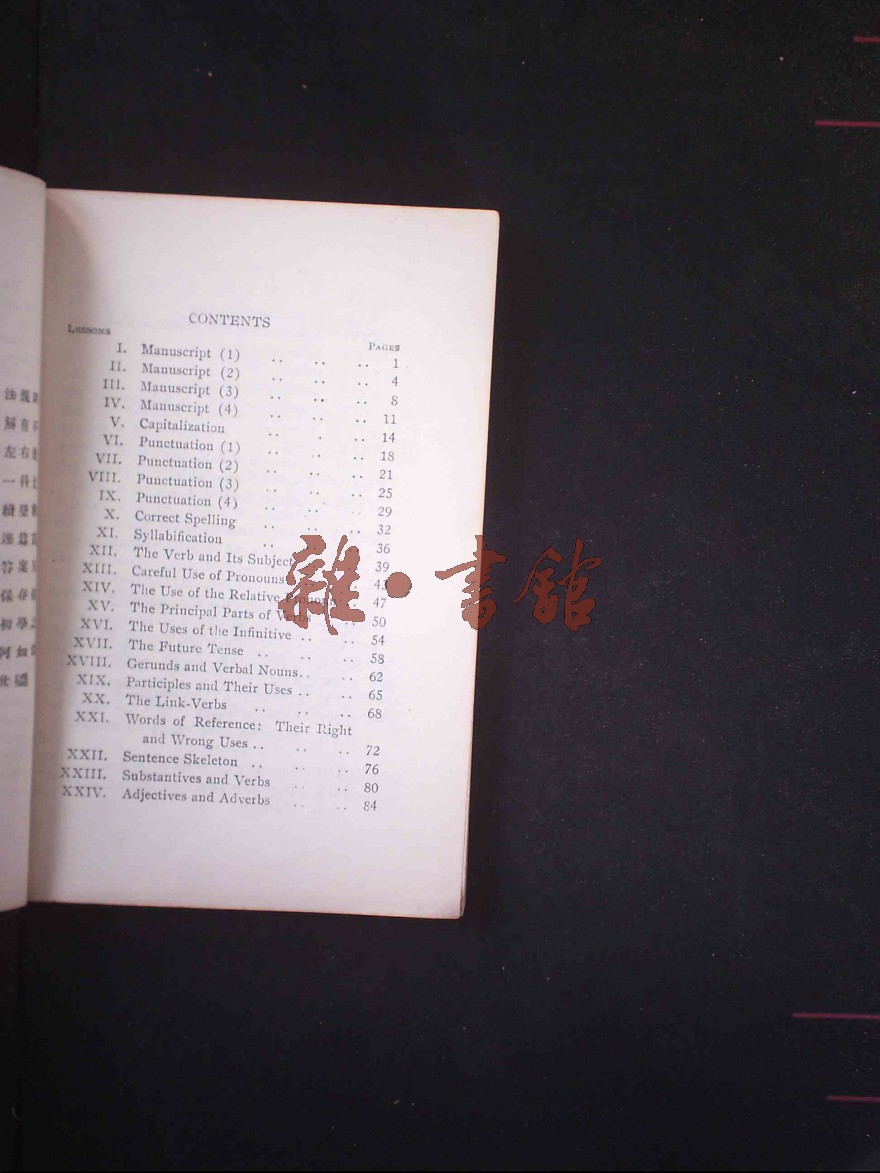 CONTENTS
LESSONS
PAGES
I. Manuscript (1) .. .. .. 1
II. Manuscript (2) .. .. .. 4
III. Manuscript (3) .. .. .. 8
IV. Manuscript (4) .. .. .. 11
V. Capitalization .. . .. 14
VI. Punctuation (1) .. .. .. 18
VII. Punctuation (2) .. .. .. 21
VIII. Punctuation (3) .. .. .. 25
IX. Punctuation (4) .. .. .. 29
X. Correct Spelling .. .. .. 32
XI. Syllabification .. .. .. 36
XII. The Verb and Its Subject 39
XIII. Careful Use of Pronouns 43
XIV. The Use of the Relative Pronoun 47
XV. The Principal Parts of Verbs 50
XVI. The Uses of the Infinitive .. .. 54
XVII. The Future Tense .. .. .. 58
XVIII. Gerunds and Verbal Nouns.. .. 62
XIX. Participles and Their Uses .. .. 65
XX. The Link-Verbs .. .. .. 68
XXI. Words of Reference: Their Right
and Wrong Uses .. .. .. 72
XXII. Sentence Skeleton .. .. .. 76
XXIII. Substantives and Verbs .. .. 80
XXIV. Adjectives and Adverbs .. .. 84
雜·書館